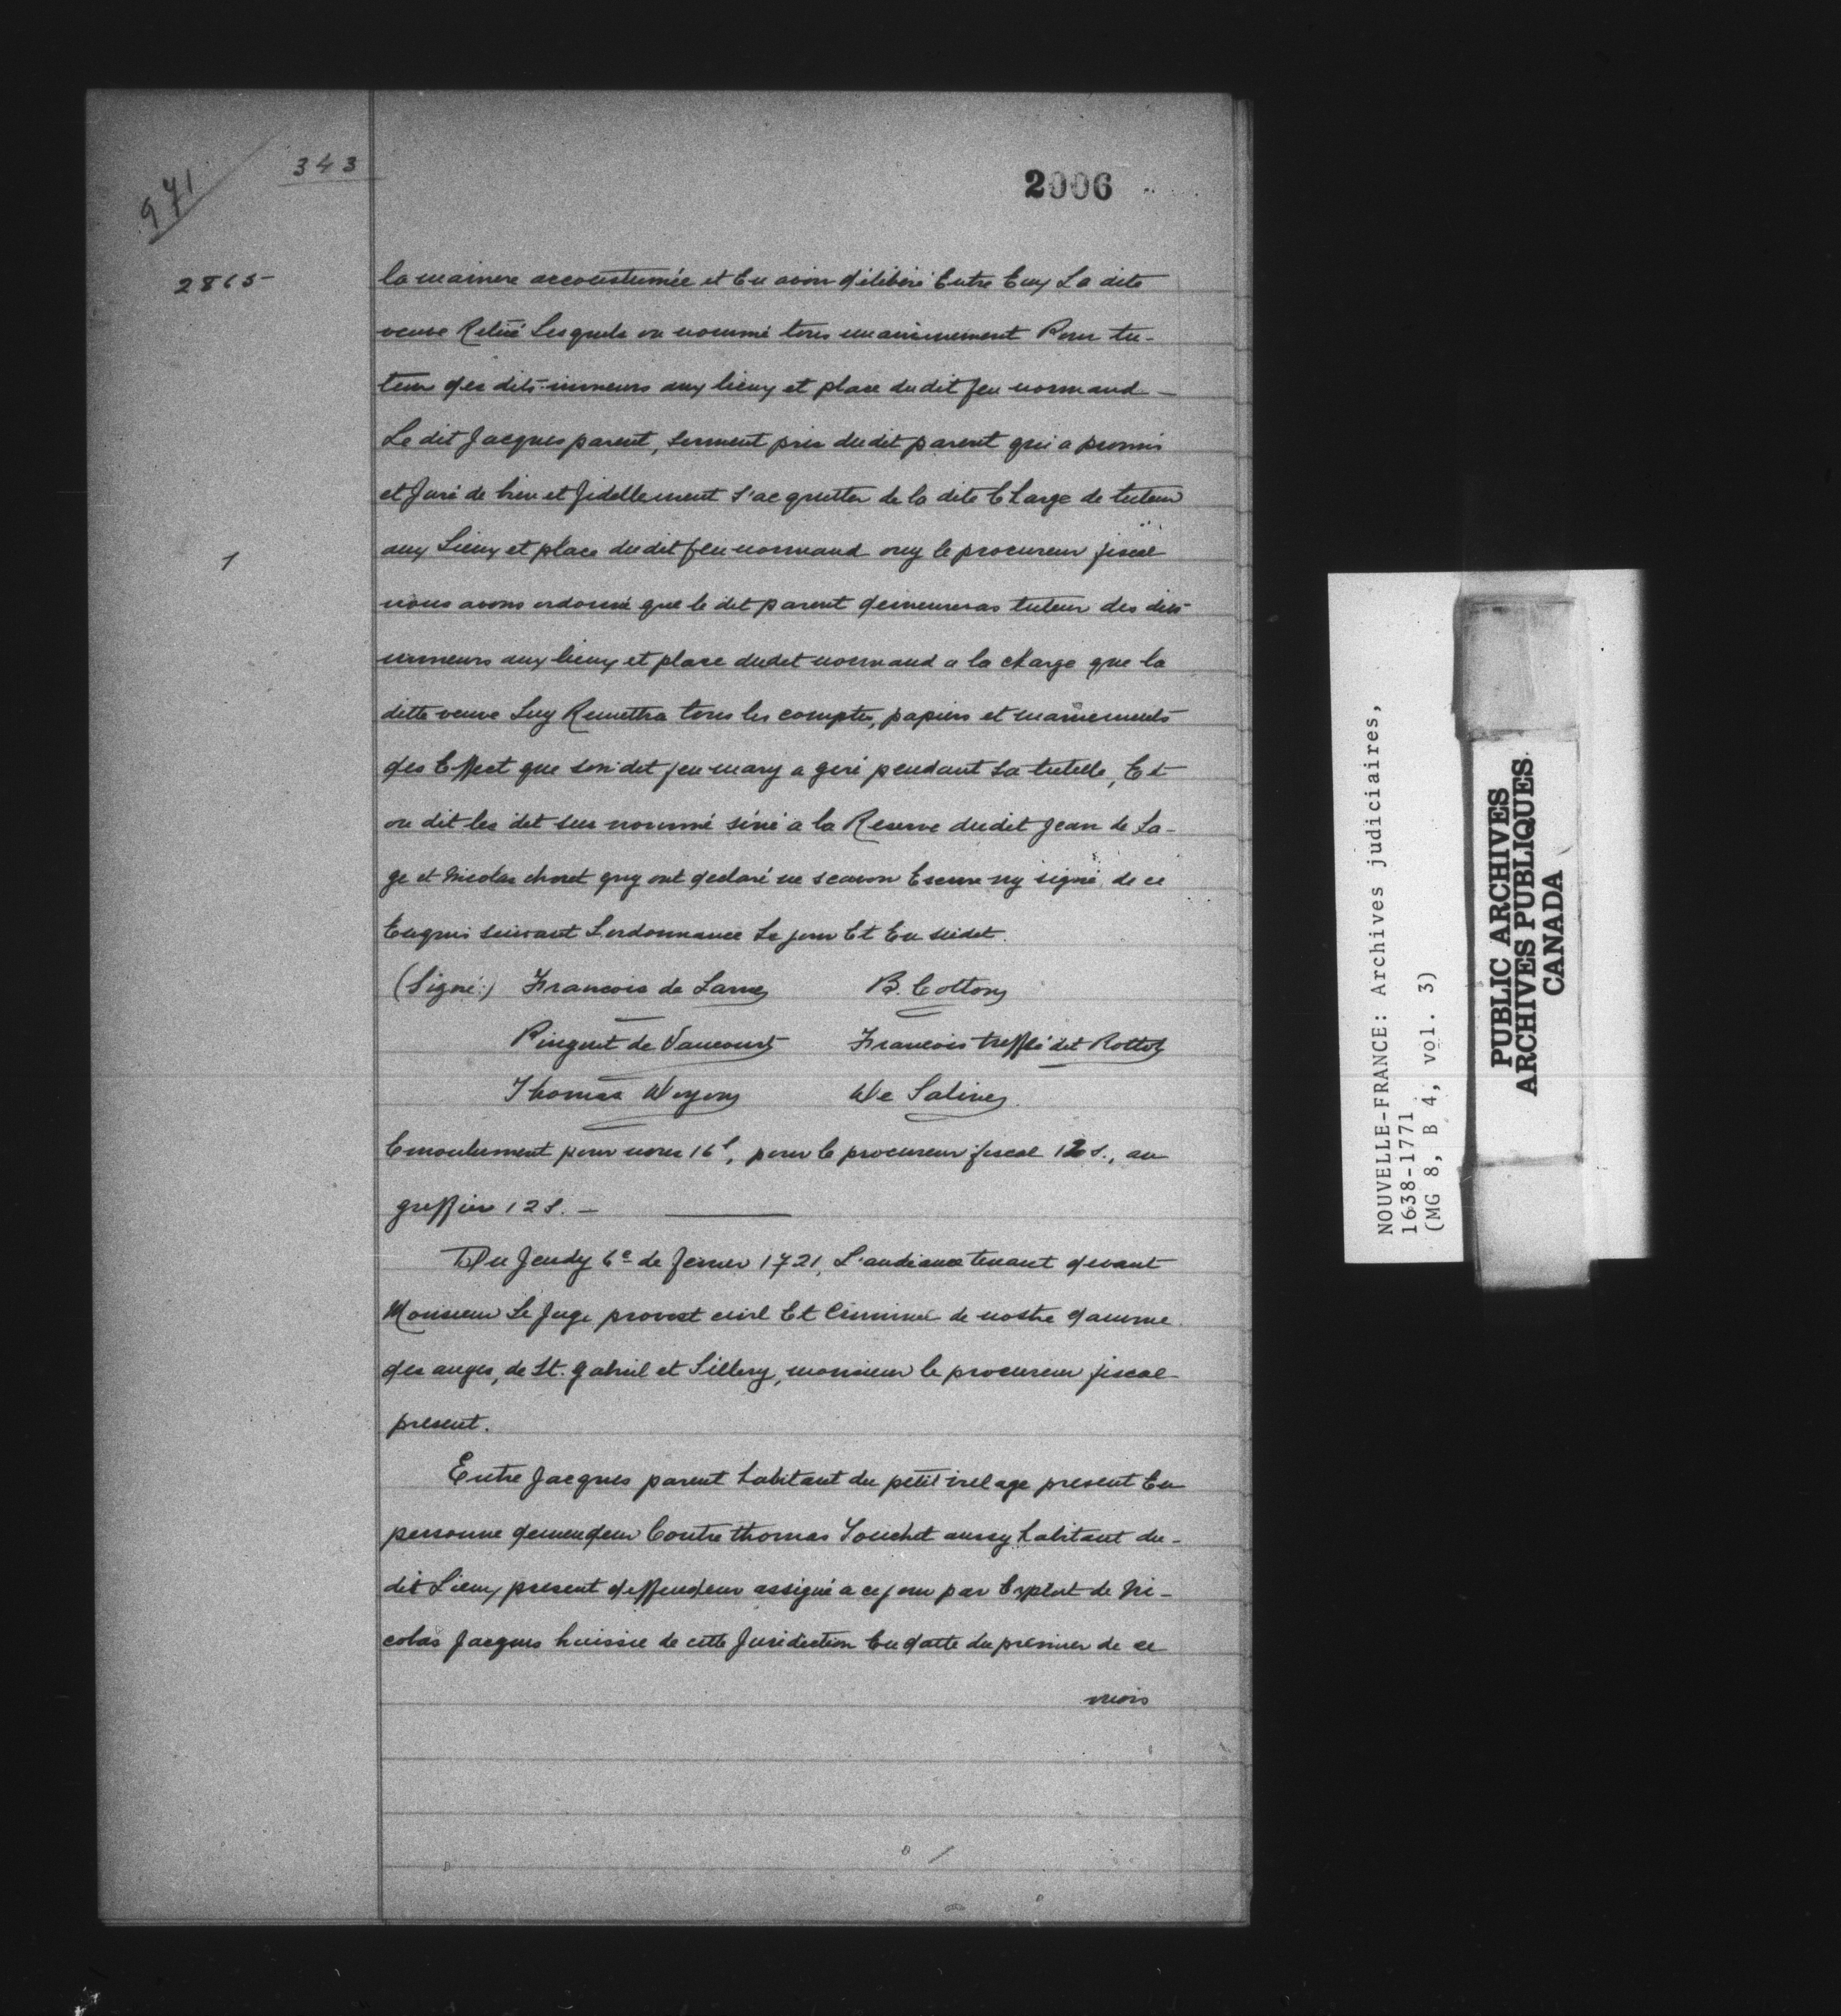 343
971
2006
2865
la maniere accoustumée et En avoir délibéré Entre Eux La dite
veuve Retiré Lesquels on nommé tous unanimement Pour tu-
teur des dits mineurs aux lieux et place dudit feu normand -
Le dit Jacques parent, serment pris dudit parent qui a promis
et Juré de bien et fidellement s'acquitter de la dite Charge de tuteur
1
aux Lieux et place dudit feu normand ouy le procureur fiscal
nous avons ordonné que le dit parent demeureras tuteur des dits
mineurs aux lieux et place dudit normand a la charge que la
ditte veuve Luy Remettra tous les comptes, papiers et maniements
des Effect que son dit feu mary a geré pendant sa tutelle, Et
on dit les dit sus nommé siné a la Reserve dudit Jean de La-
ge et Nicolas choret quy ont declaré ne scavoir Escrire ny signé de ce
Enquis suivant L'ordonnance Le jour Et En susdit.
(Signé:) Francois de Lame B. Cotton
Pinguet de Vaucourt Francois trefflé dit Rottot
Thomas Moyen De Saline
Emoulument pour nous 16 s, pour le procureur fiscal 12 s., au
greffier 12 s. -
Du Jeudy 6e de fevrier 1721, L'audiance tenant devant
Monsieur Le Juge provost civil Et Criminel de nostre damme
des anges, de St. gabriel et Sillery, monsieur le procureur fiscal
present.
Entre Jacques parent habitant du petit vilage present En
personne demendeur Contre thomas Touchet aussy habitant du-
dit Lieux present deffendeur assigné a ce jour par Exploit de Ni-
colas Jacques huissie de cette Juridiction En datte du premier de ce
mois
NOUVELLE-FRANCE: Archives judiciaires,
1638-1771
(MG 8, B 4, vol. 3)
PUBLIC ARCHIVES
ARCHIVES PUBLIQUES
CANADA